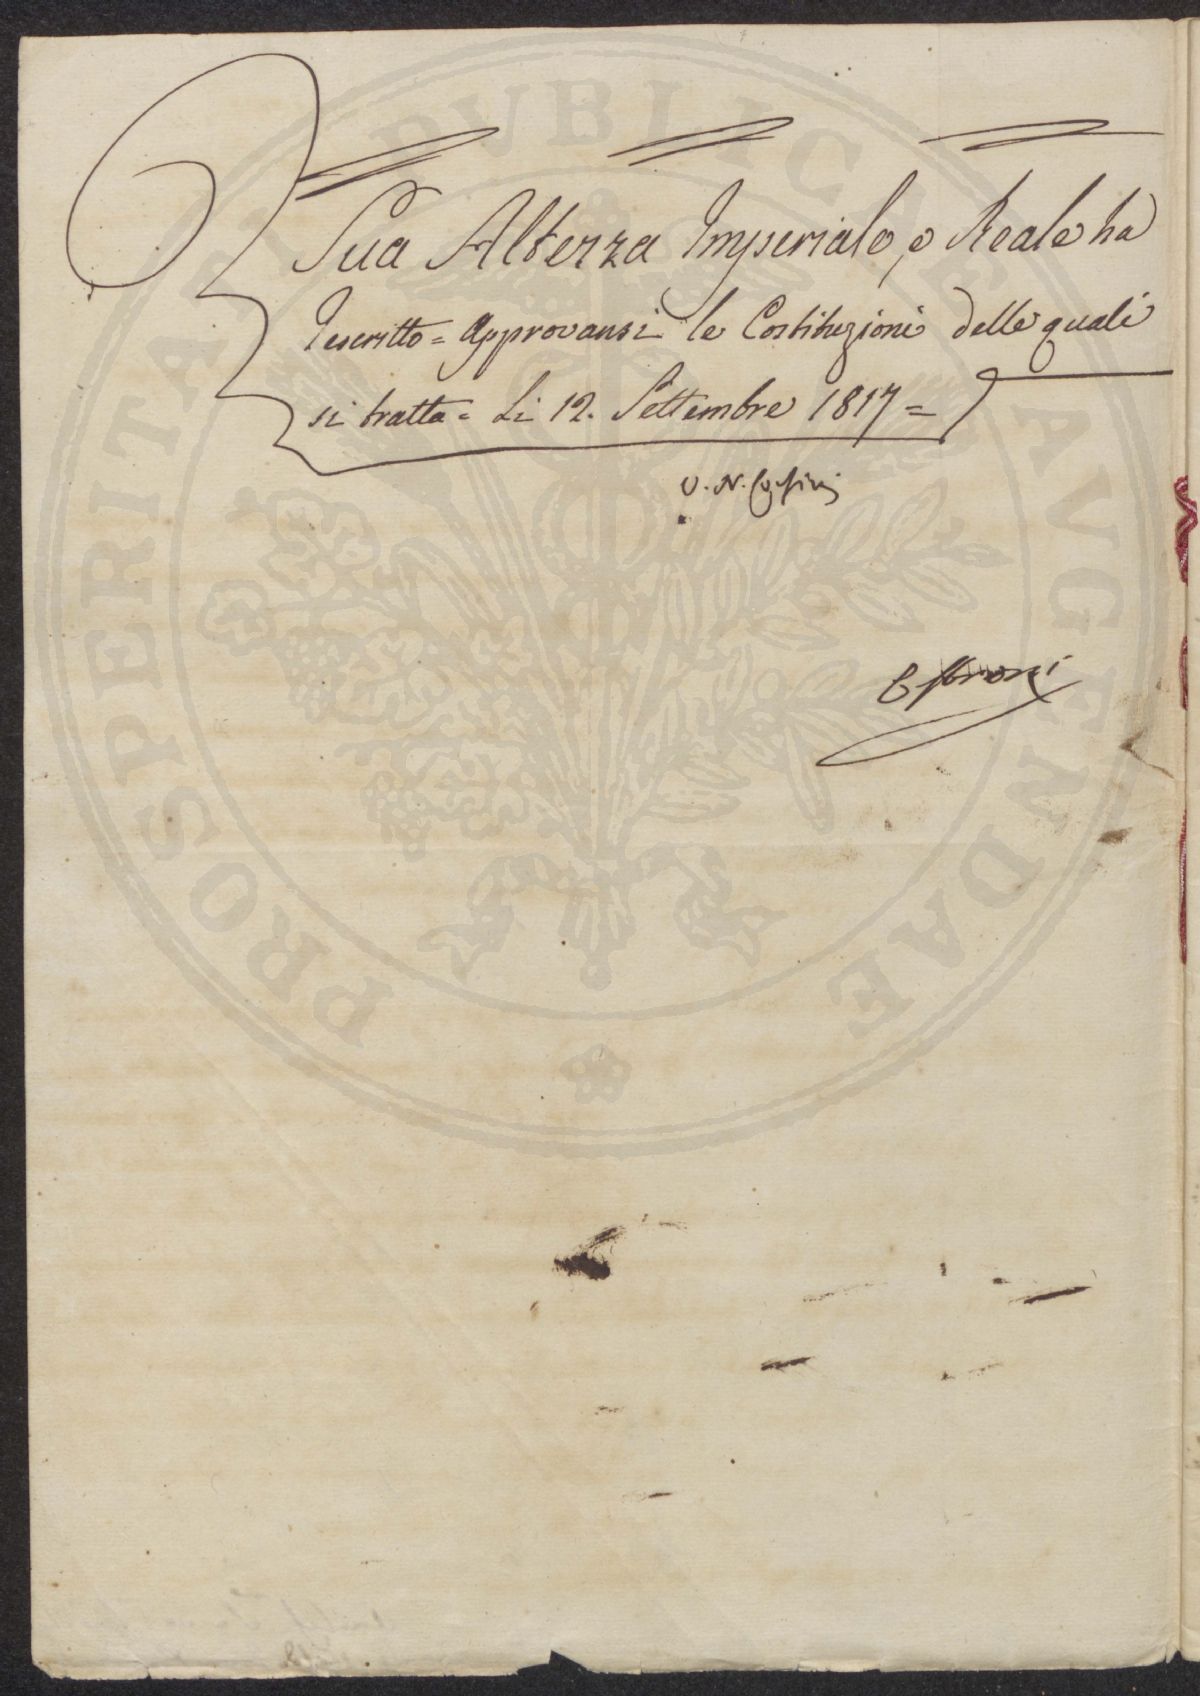 Sua Altezza Imperiale, e Reale ha
rescritto = Approvansi le Costituzioni delle quali
si tratta = Li 12. Settembre 1817 =
V. N. Corsini
PROSPERITATI PUBLICAE AVGENDAE